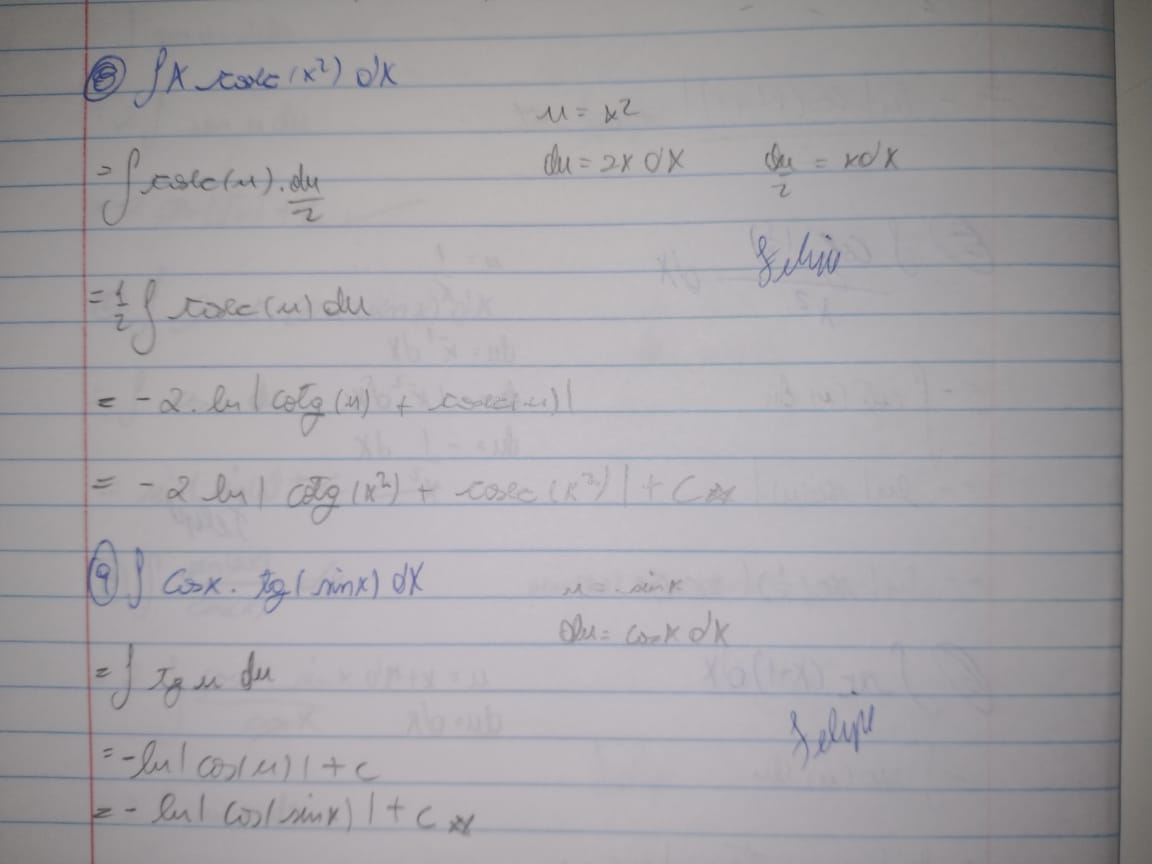 8 ∫ x cosec(x²) dx
u = x²
du = 2x dx   du/2 = x dx
= ∫ cosec(u) . du/2
Felipe
= 1/2 ∫ cosec(u) du
= -2 . ln | cotg(u) + cosec(u) |
= -2 ln | cotg(x²) + cosec(x²) | + C
9 ∫ cosx . tg(sinx) dx
u = sinx
du = cosx dx
= ∫ tg u du
Felipe
= -ln | cos(u) | + c
= - ln | cos(sinx) | + c